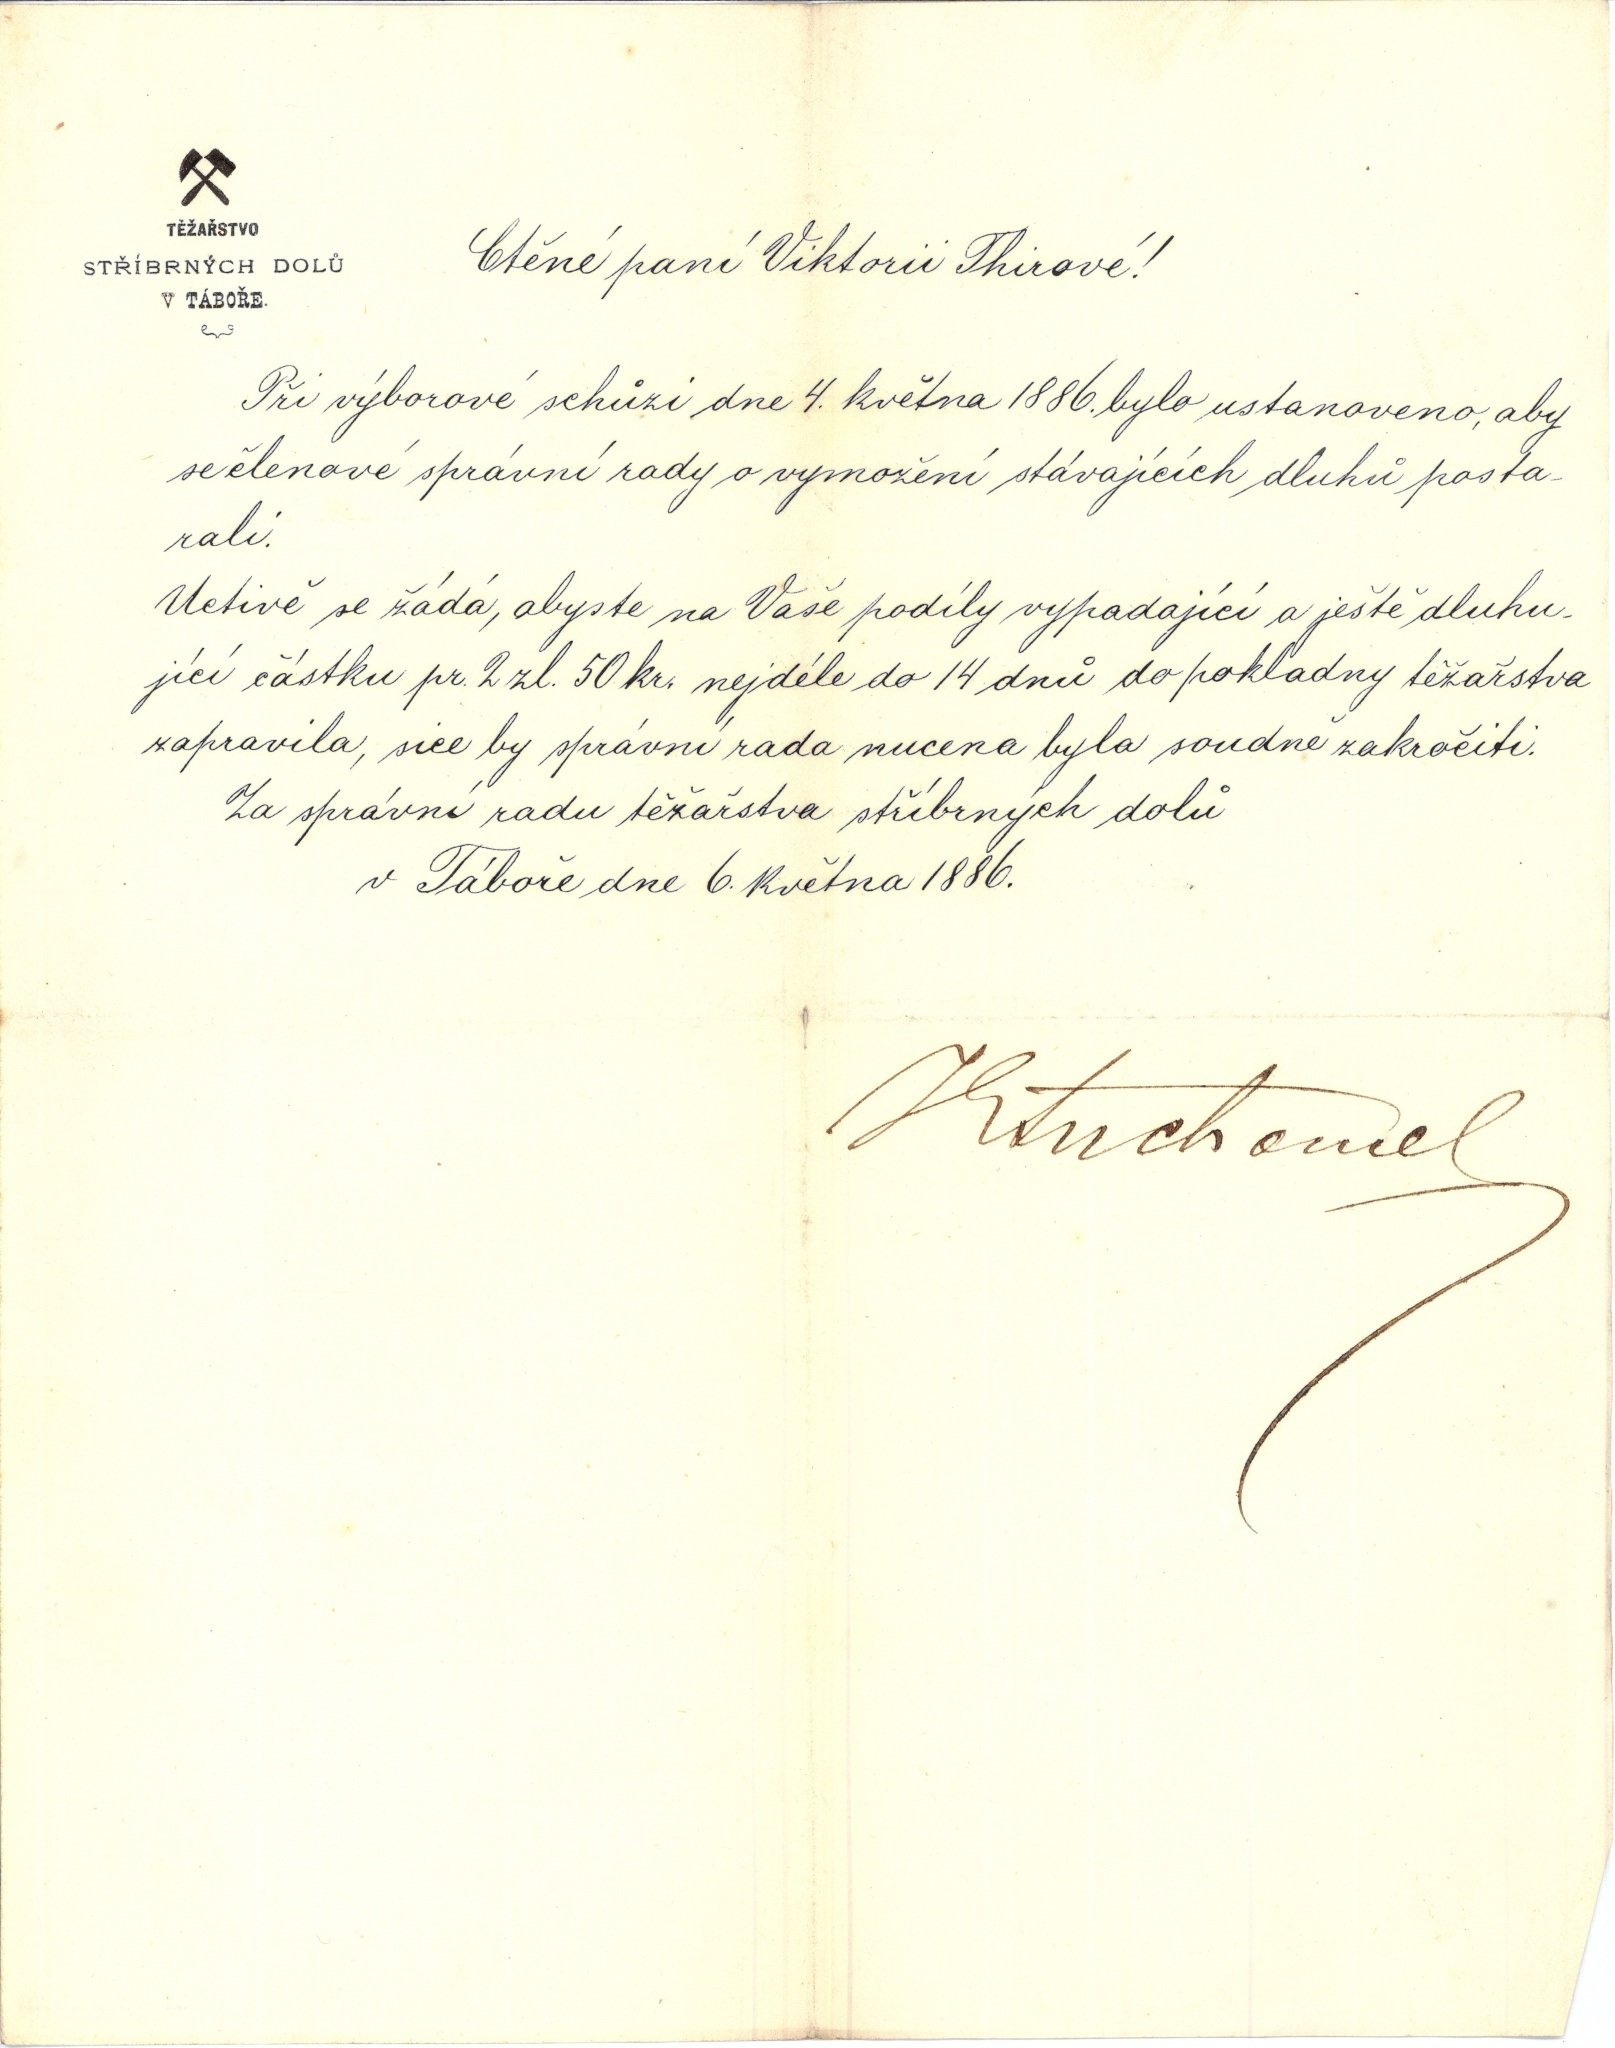 TĚŽAŘSTVO
STŘÍBRNÝCH DOLŮ
V TÁBOŘE.
Ctěné paní Viktorii Thirové!
Při výborové schůzi dne 4. května 1886. bylo ustanoveno, aby
se členové správní rady o vymožení stávajících dluhů posta-
rali.
Uctivě se žádá, abyste na Vaše podíly vypadající a ještě dluhu-
jící částku pr. 2 zl. 50 kr. nejdéle do 14 dnů do pokladny těžařstva
zapravila, sice by správní rada nucena byla soudně zakročiti.
Za správní radu těžařstva stříbrných dolů
v Táboře dne 6. května 1886.